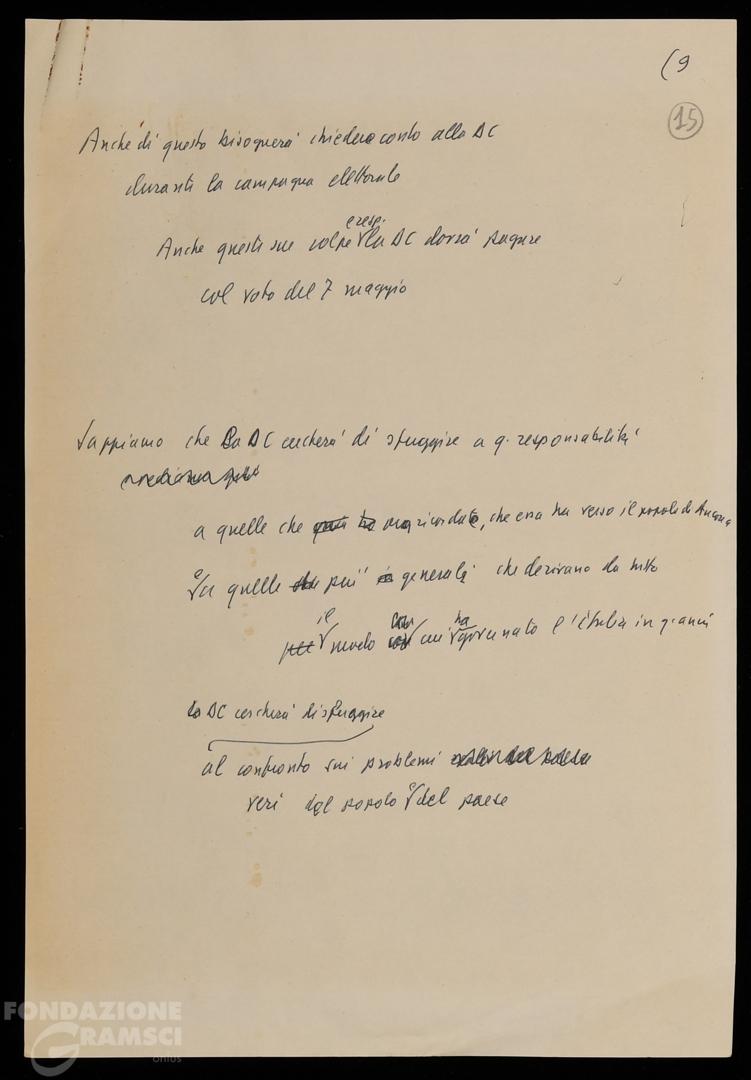 (9
15
Anche di questo bisognerà chiedere conto alla DC
durante la campagna elettorale
e resp.
Anche queste sue colpe la DC dovrà pagare
col voto del 7 maggio
Sappiamo che la DC cercherà di sfuggire a q. responsabilità
a quelle che ricordate, che essa ha verso il popolo di Ancona
e a quelle più generali che derivano da tutto
il con ha
modo cui governato l'Italia in q. anni
La DC cercherà di sfuggire
al confronto sui problemi
veri del popolo e del paese
FONDAZIONE
GRAMSCI
onlus